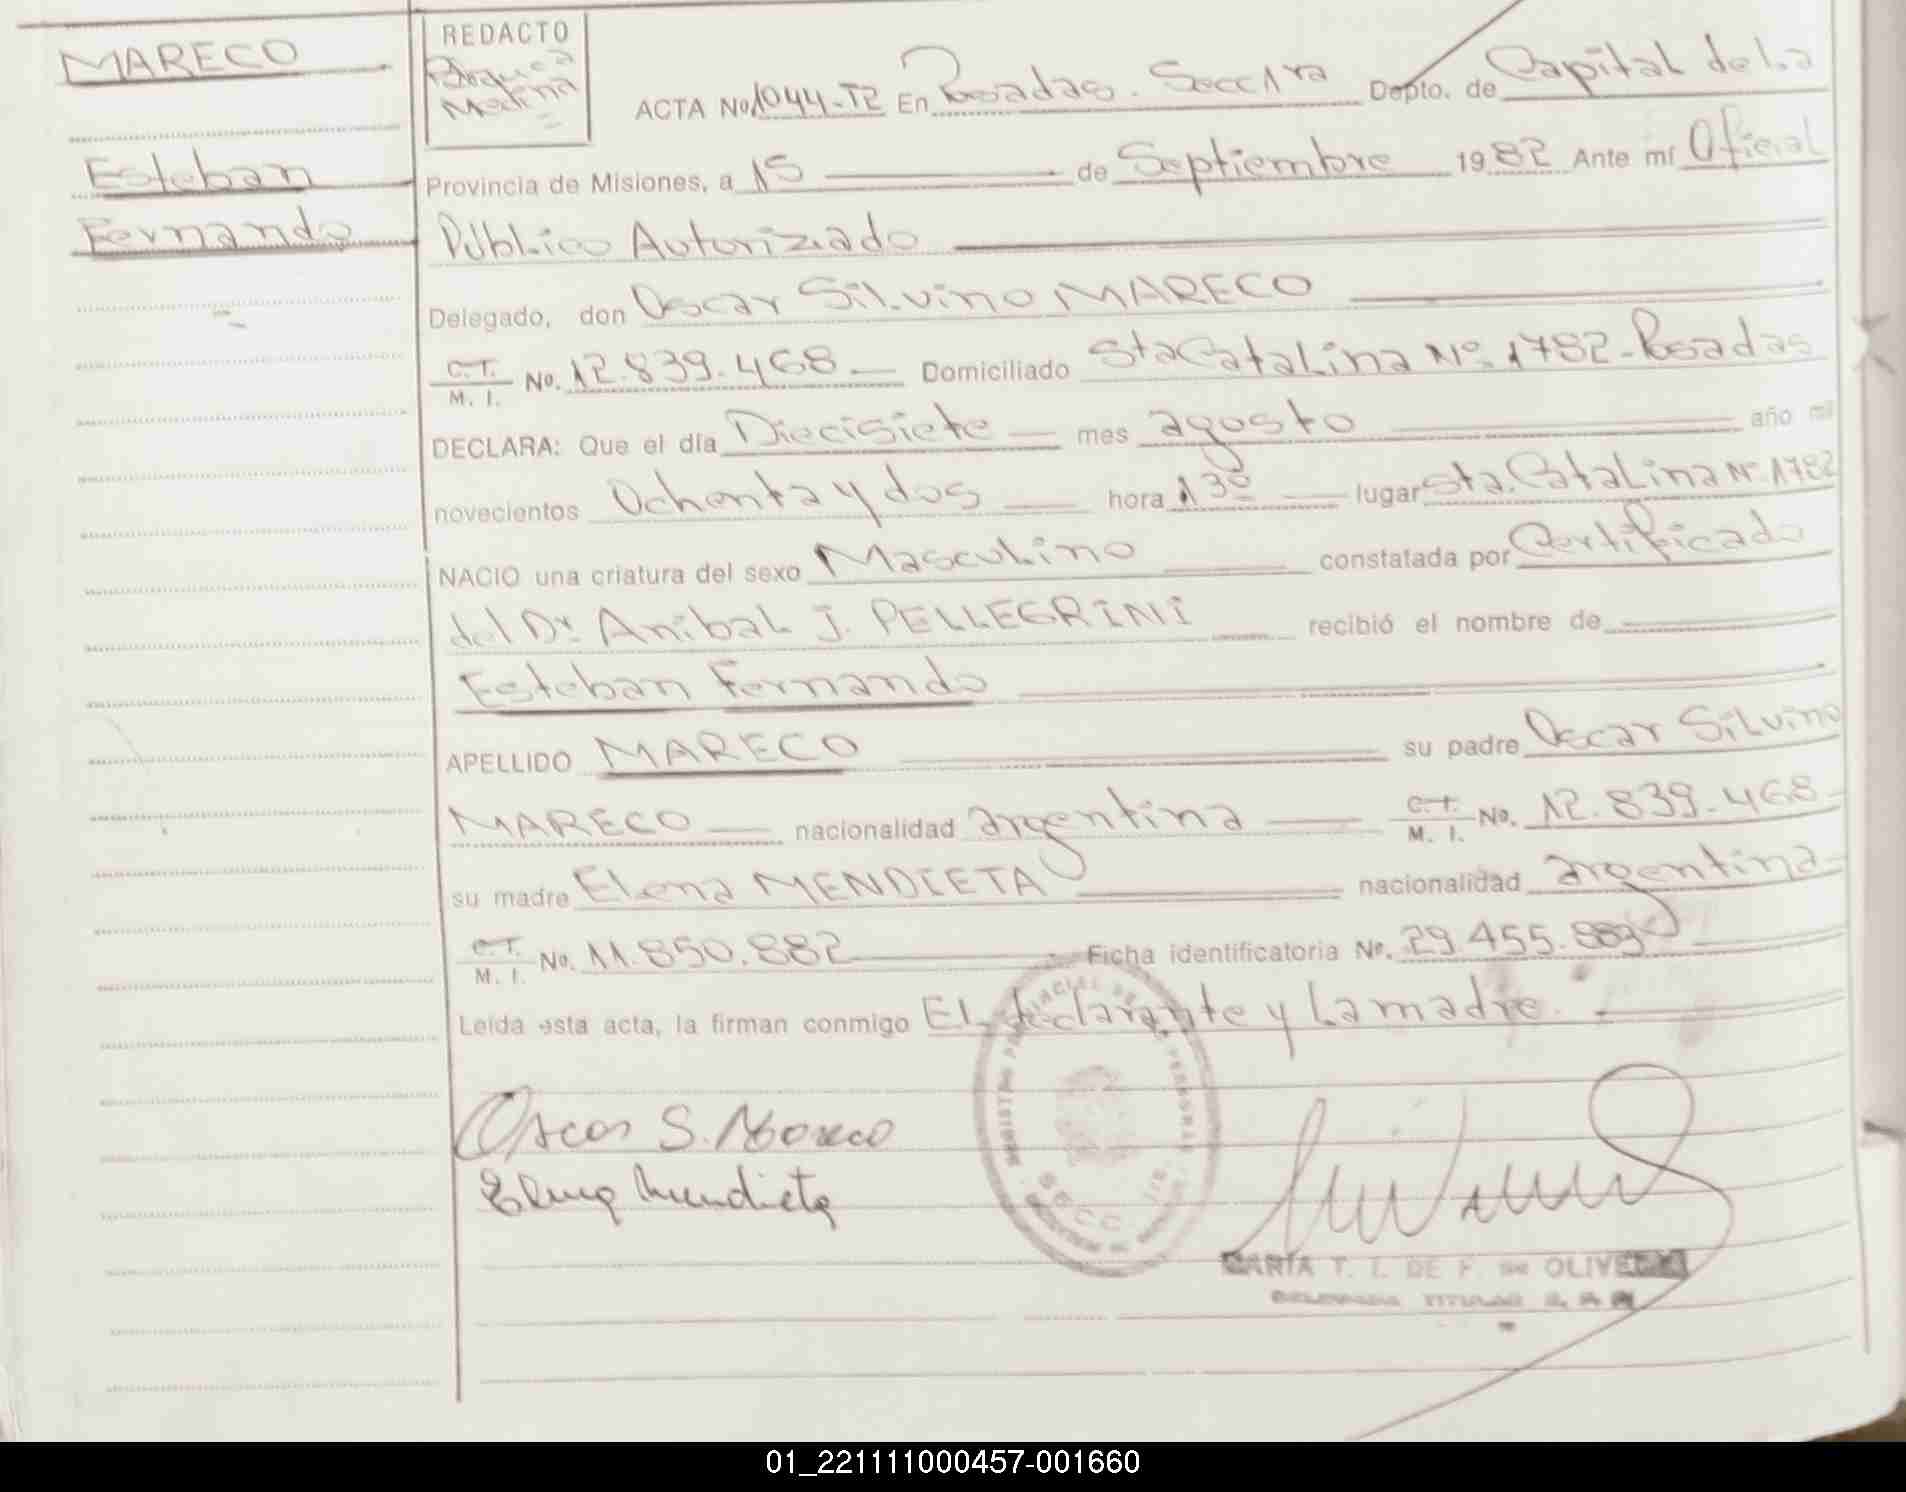 MARECO
Esteban
Fernando
REDACTO
Medina
ACTA No. 1044-T2 En Posadas. Secc 1ra Depto. de Capital de La
Provincia de Misiones, a 15 de Septiembre 1982 Ante mí Oficial
Público Autorizado
Delegado, don Oscar Silvino MARECO
C.T. M. I. No. 12.839.468 Domiciliado Sta Catalina Nº 1782 - Posadas
DECLARA: Que el día Diecisiete mes agosto año mil
novecientos Ochenta y dos hora 13º lugar Sta. Catalina Nº 1782
NACIO una criatura del sexo Masculino constatada por Certificado
del Dr. Anibal J. PELLEGRINI recibió el nombre de
Esteban Fernando
APELLIDO MARECO su padre Oscar Silvino
MARECO nacionalidad argentina C.T. M. I. No. 12.839.468
su madre Elena MENDIETA nacionalidad argentina
C.T. M. I. No. 11.850.882 Ficha identificatoria No. 29.455.889
Leída esta acta, la firman conmigo El declarante y La madre.
Oscar S. Mareco
Elena Mendieta
SECC
MARIA T. I. DE F. DE OLIVEIRA
DELEGADA TITULAR
01_221111000457-001660